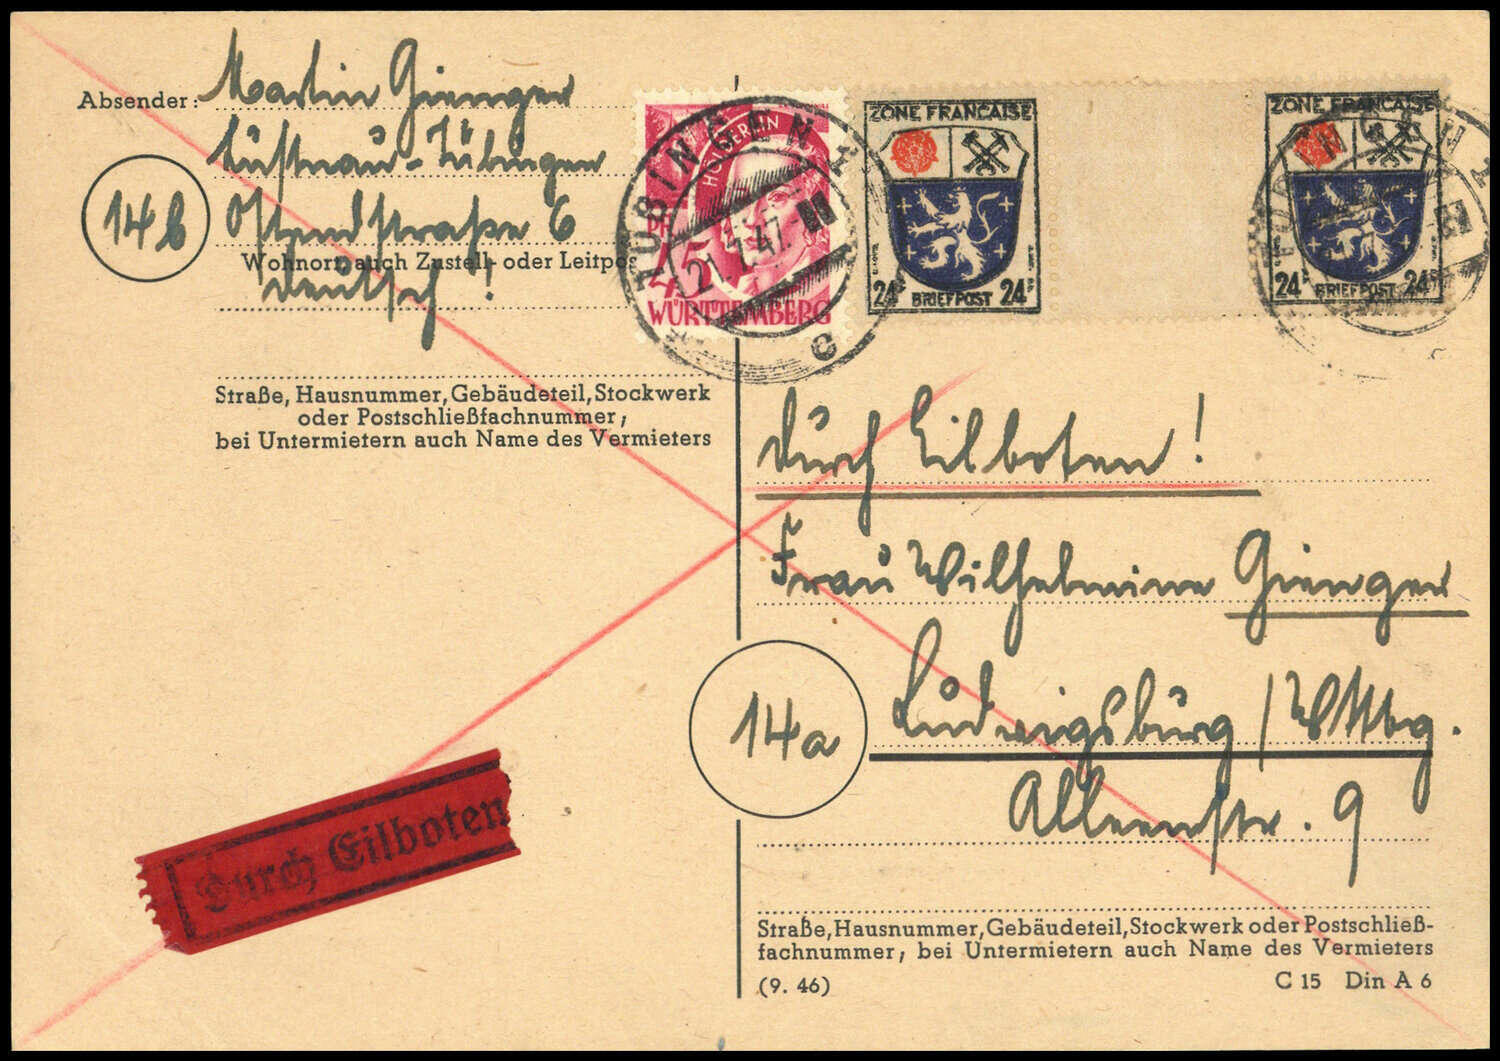 Absender: Martin Gienger
Lustnau-Tübingen
14b Ostendstraße 6
Wohnort, auch Zustell- oder Leitpos
deutsch!
Straße, Hausnummer, Gebäudeteil, Stockwerk
oder Postschließfachnummer;
bei Untermietern auch Name des Vermieters
HÖLDERLIN
PF
45
WÜRTTEMBERG
TÜBINGEN 1
21.7.47.
c
ZONE FRANÇAISE
24 BRIEFPOST 24
ZONE FRANÇAISE
24 BRIEFPOST 24
TÜBINGEN 1
Durch Eilboten!
Frau Wilhelmine Gienger
14a Ludwigsburg / Wttbg.
Alleenstr. 9
Durch Eilboten
Straße, Hausnummer, Gebäudeteil, Stockwerk oder Postschließ-
fachnummer; bei Untermietern auch Name des Vermieters
(9. 46) C 15 Din A 6